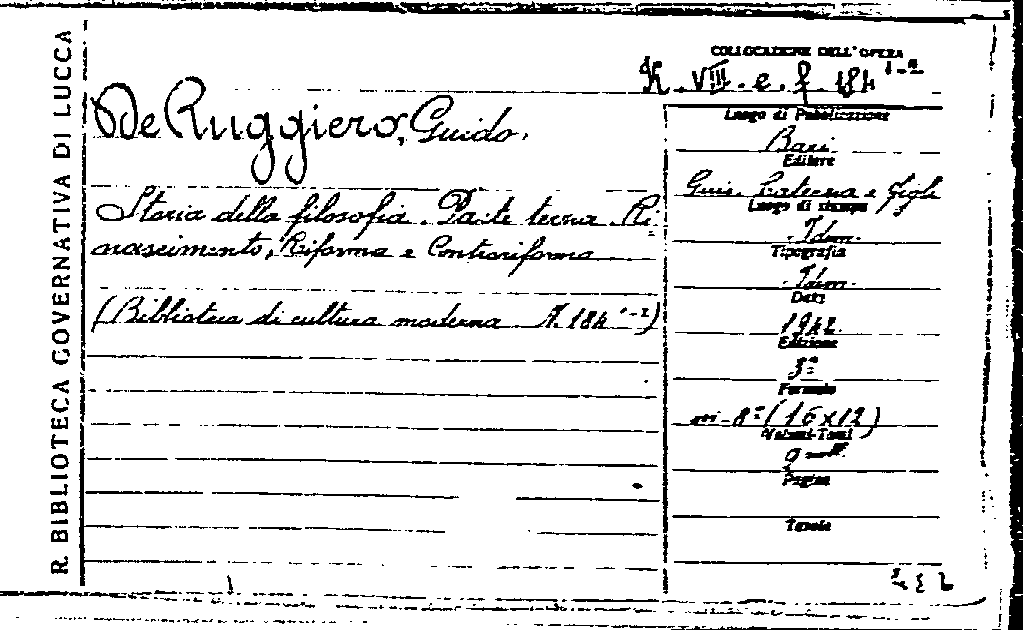 R. BIBLIOTECA GOVERNATIVA DI LUCCA
COLLOCAZIONE DELL'OPERA
K. VIII. e. f. 184 1-2
De Ruggiero, Guido.
Storia della filosofia. Parte terza. Ri-
nascimento, Riforma e Controriforma
(Biblioteca di cultura moderna N. 184 1-2)
Luogo di Pubblicazione
Bari
Editore
Gius. Laterza e figli
Luogo di stampa
Idem.
Tipografia
Idem.
Data
1942
Edizione
3ª
Formato
in-8° (16x12)
Volumi-Tomi
Pagine
Tavole